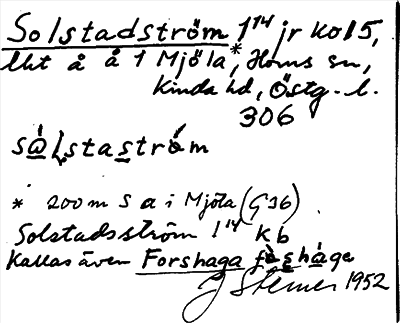 Solstadström 1¹⁴ jr ko 15,
lht å å 1 Mjöla*, Horns sn,
Kinda hd, Östg. l.
306
sạ̀lstaström
* 200 m S a i Mjöla (G 36)
Solstadsström 1¹⁴ kb
Kallas även Forshaga fòshága
1952